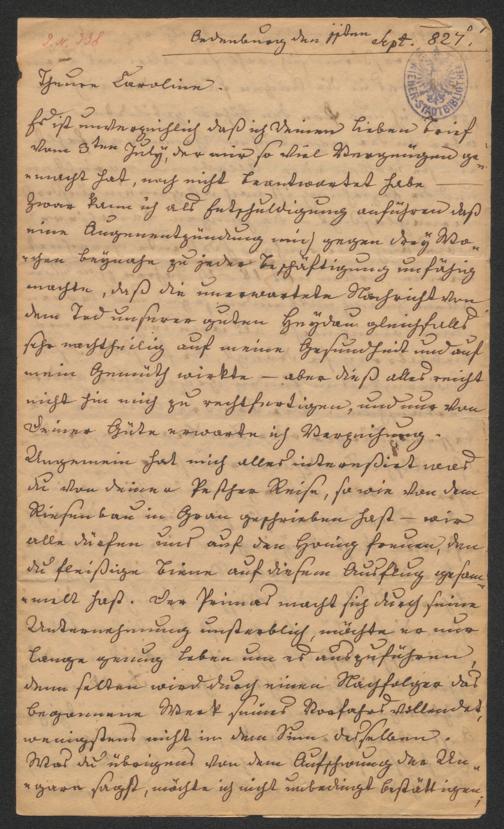 J. N. 338
Oedenburg den 11ten Sept. 827.
WIENER STADTBIBLIOTHEK
Theure Caroline.
Es ist unverzeihlich daß ich Deinen lieben Brief
vom 3ten July, der mir so viel Vergnügen ge-
macht hat, noch nicht beantwortet habe —
Zwar kann ich als Entschuldigung anführen daß
eine Augenentzündung mich gegen drey Wo-
chen beynahe zu jeder Beschäftigung unfähig
machte, daß die unerwartete Nachricht von
dem Tod unserer guten Heydau gleichfalls
sehr nachtheilig auf meine Gesundheit und auf
mein Gemüth wirkte — aber dieß alles reicht
nicht hin mich zu rechtfertigen, und nur von
Deiner Güte erwarte ich Verzeihung.
Ungemein hat mich alles interessirt was
du von deiner Pesther Reise, so wie von dem
Riesenbau in Gran geschrieben hast — wir
alle dürfen uns auf den Honig freuen, den
du fleißige Biene auf diesem Ausflug gesam-
melt hast. Der Primas macht sich durch seine
Unternehmung unsterblich, möchte er nur
lange genug leben um es auszuführen,
denn selten wird durch einen Nachfolger das
begonnene Werk seines Vorfahrs vollendet,
wenigstens nicht in dem Sinn desselben.
Was du übrigens von dem Aufschwung der Un-
garn sagst, möchte ich nicht unbedingt bestättigen;